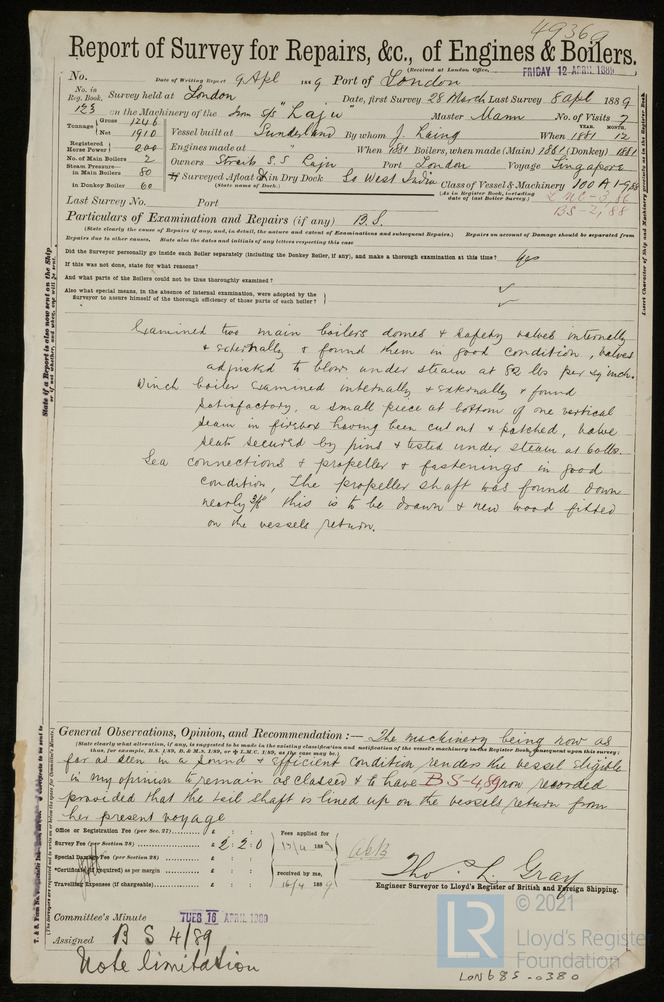 49369
Report of Survey for Repairs, &c., of Engines & Boilers.
(Received at London Office, FRIDAY 12 APRIL 1889
No. Date of Writing Report 9 Apl 1889 Port of London
No. in Reg. Book. Survey held at London Date, first Survey 28 March Last Survey 8 apl 1889
123 on the Machinery of the Iron S/S "Laju" Master Mann No. of Visits 7
Tonnage Gross 1246 Net 1910 Vessel built at Sunderland By whom J. Laing When YEAR. 1881 MONTH. 12
Registered Horse Power 200 Engines made at " When 1881 Boilers, when made (Main) 1881 (Donkey) 1881
No. of Main Boilers 2 Owners Straits S.S Port London Voyage Singapore
Steam Pressure in Main Boilers 80
in Donkey Boiler 60
If Surveyed Afloat in Dry Dock So West India Class of Vessel & Machinery 100 A1-9,88
(State name of Dock.) (As in Register Book, including date of last Boiler Survey.)
BS-2,88
Last Survey No. Port
Particulars of Examination and Repairs (if any) B.S.
(State clearly the cause of Repairs if any, and, in detail, the nature and extent of Examinations and subsequent Repairs.) Repairs on account of Damage should be separated from
Repairs due to other causes, State also the dates and initials of any letters respecting this case
Did the Surveyor personally go inside each Boiler separately (including the Donkey Boiler, if any), and make a thorough examination at this time? Yes
If this was not done, state for what reasons?
And what parts of the Boilers could not be thus thoroughly examined?
Also what special means, in the absence of internal examination, were adopted by the
Surveyor to assure himself of the thorough efficiency of those parts of each boiler?
Examined two main boilers domes & safety valves internally
& externally & found them in good condition, valves
adjusted to blow under steam at 82 lbs per sq inch.
Winch boiler examined internally & externally & found
satisfactory, a small piece at bottom of one vertical
seam in firebox having been cut out & patched, valve
seats secured by pins & tested under steam at 60lbs.
Sea connections & propeller & fastenings in good
condition, The propeller shaft was found down
nearly 3/8 this is to be drawn & new wood fitted
on the vessels return.
General Observations, Opinion, and Recommendation :— The machinery being now as
(State clearly what alteration, if any, is suggested to be made in the existing classification and notification of the vessel's machinery in the Register Book, consequent upon this survey:
thus, for example, B.S. 1/89, B. & M.S. 1/89, or L.M.C. 1/89, as the case may be.)
far as seen in a sound & efficient condition renders the vessel eligible
in my opinion to remain as classed & to have BS-4,89 now recorded
provided that the tail shaft is lined up on the vessels return from
her present voyage
Office or Registration Fee (per Sec. 27) £ : : Fees applied for
Survey Fee (per Section 28) £ 2:2:0 1889
Special Damage Fee (per Section 28) £ : :
*Certificate (if required) as per margin £ : : received by me,
Travelling Expenses (if chargeable) £ : : 16/4 1889
Tho. L. Gray
Engineer Surveyor to Lloyd's Register of British and Foreign Shipping.
Committee's Minute TUES 16 APRIL 1889
Assigned B S 4/89
Note limitation
© 2021
LR Lloyd's Register
Foundation
LON685-0380